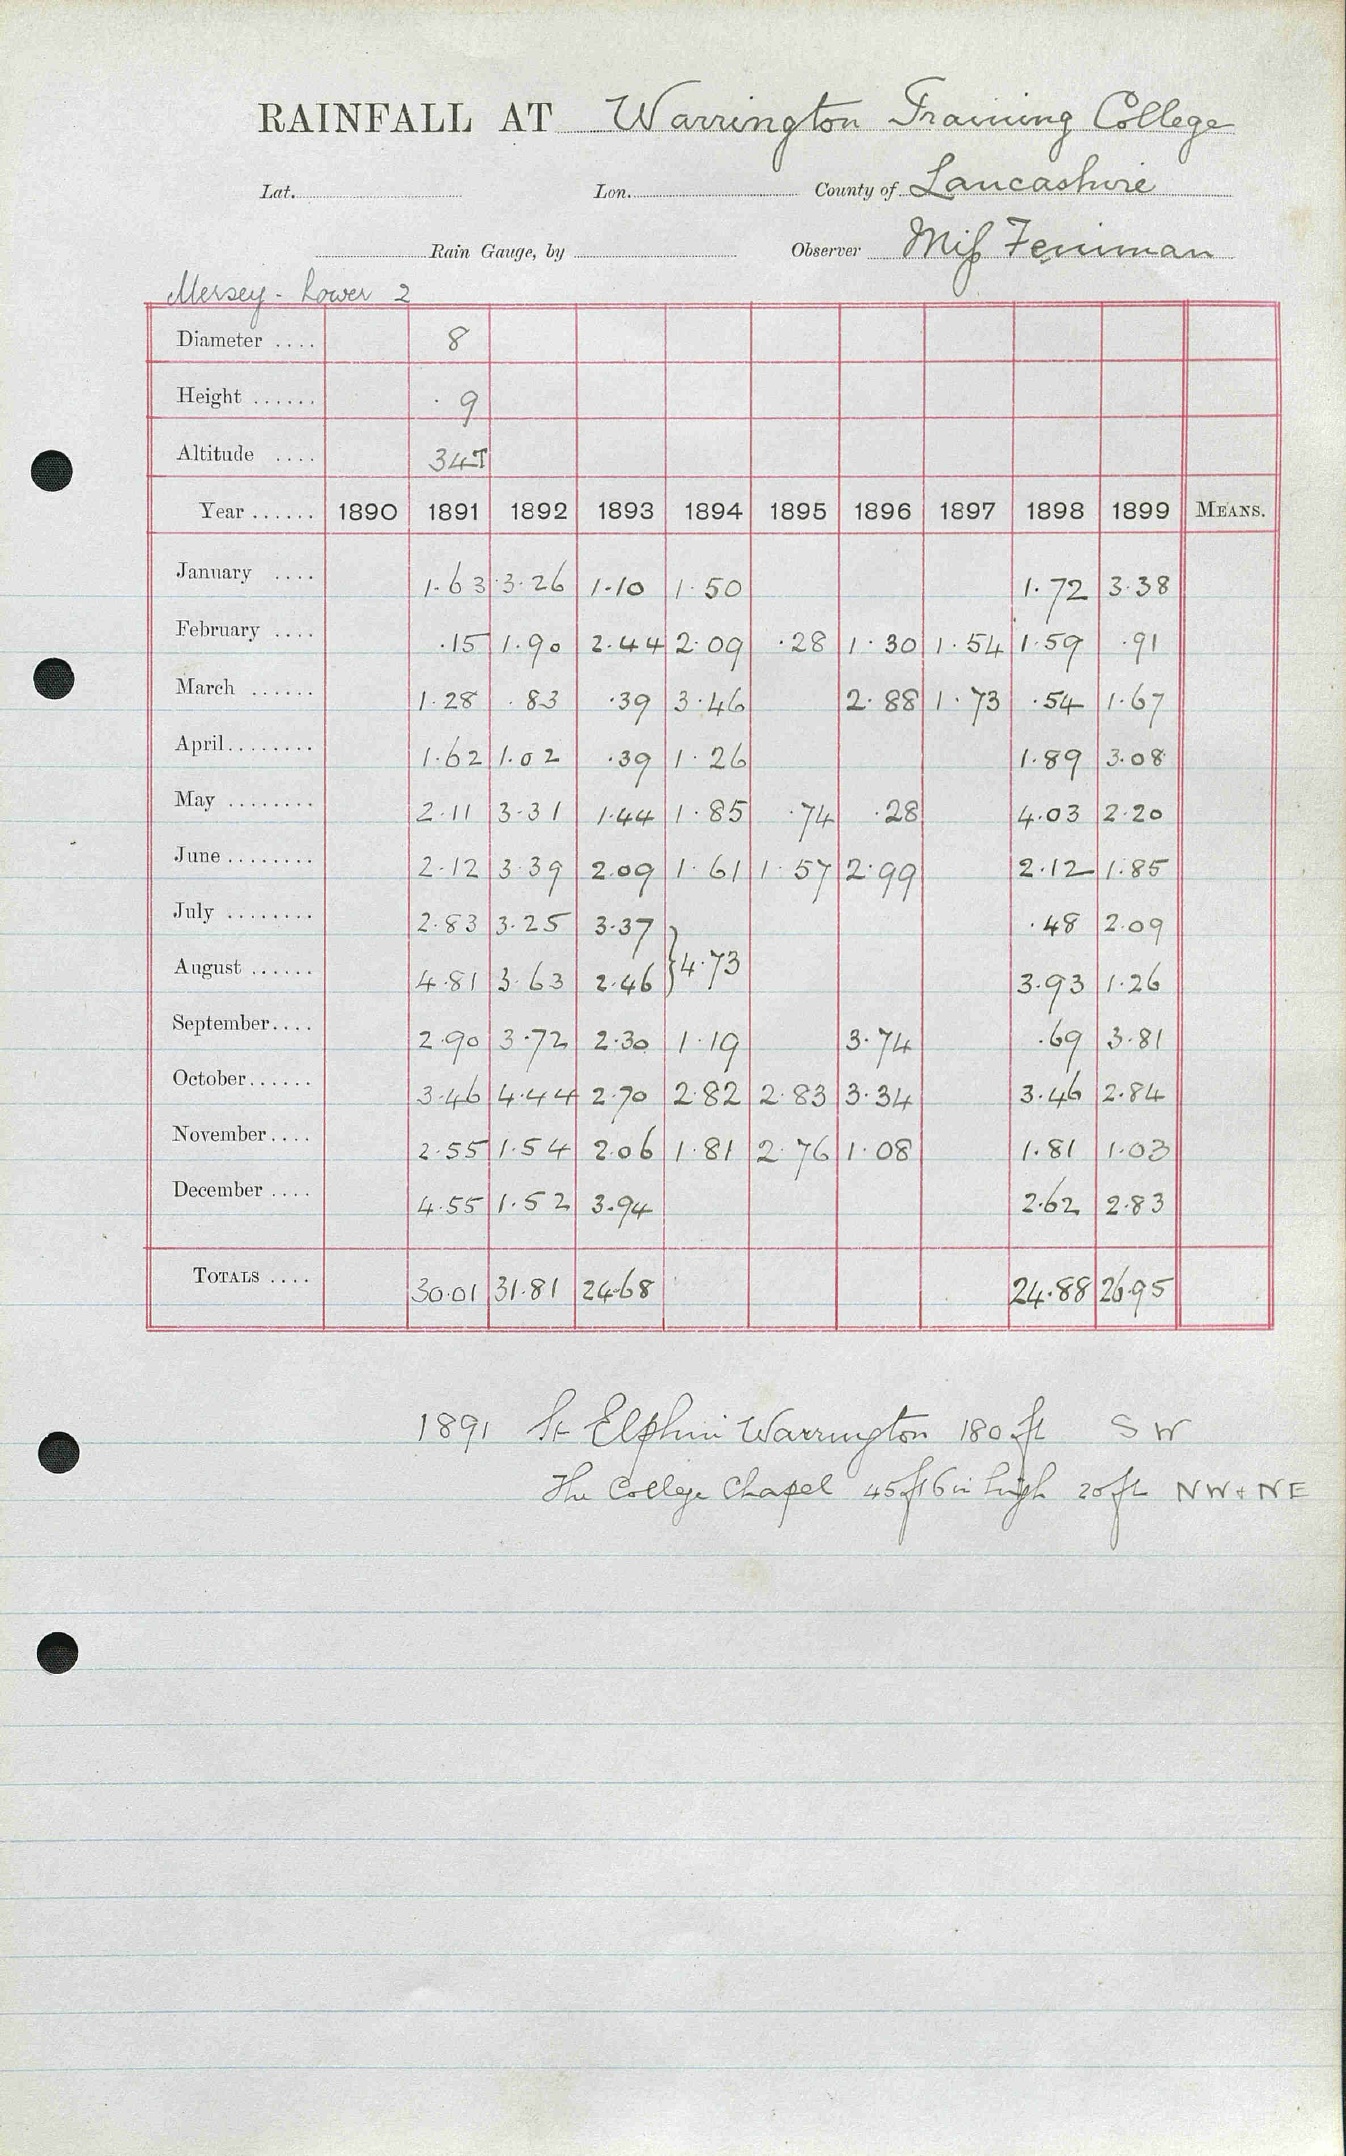 RAINFALL AT Warrington Training College
Lat. Lon. County of Lancashire
Rain Gauge, by Observer Miss Feniman
Mersey - Lower 2
Diameter .... 8
Height ...... · 9
Altitude .... 34T
Year ...... 1890 1891 1892 1893 1894 1895 1896 1897 1898 1899 MEANS.
January .... 1.63 3.26 1.10 1.50 1.72 3.38
February .... .15 1.90 2.44 2.09 .28 1.30 1.54 1.59 .91
March ...... 1.28 .83 .39 3.46 2.88 1.73 .54 1.67
April........ 1.62 1.02 .39 1.26 1.89 3.08
May ........ 2.11 3.31 1.44 1.85 .74 .28 4.03 2.20
June ........ 2.12 3.39 2.09 1.61 1.57 2.99 2.12 1.85
July ........ 2.83 3.25 3.37 .48 2.09
} 4.73
August ...... 4.81 3.63 2.46 3.93 1.26
September.... 2.90 3.72 2.30 1.19 3.74 .69 3.81
October...... 3.46 4.44 2.70 2.82 2.83 3.34 3.46 2.84
November.... 2.55 1.54 2.06 1.81 2.76 1.08 1.81 1.03
December .... 4.55 1.52 3.94 2.62 2.83
TOTALS .... 30.01 31.81 24.68 24.88 26.95
1891 St Elphin Warrington 180 ft SW
The College Chapel 45 ft 6 in high 20 ft NW + NE